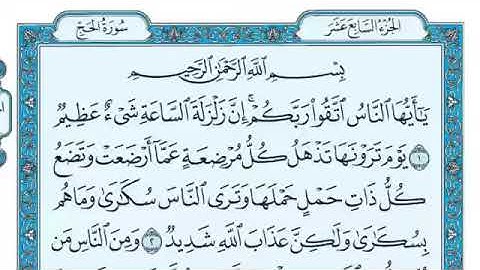 الجزء السابع عشر
سورة الحج
بِسْمِ اللَّهِ الرَّحْمَٰنِ الرَّحِيمِ
يَٰٓأَيُّهَا النَّاسُ اتَّقُوا رَبَّكُمْ ۚ إِنَّ زَلْزَلَةَ السَّاعَةِ شَىْءٌ عَظِيمٌ
١ يَوْمَ تَرَوْنَهَا تَذْهَلُ كُلُّ مُرْضِعَةٍ عَمَّا أَرْضَعَتْ وَتَضَعُ
كُلُّ ذَاتِ حَمْلٍ حَمْلَهَا وَتَرَى النَّاسَ سُكَٰرَىٰ وَمَا هُم
بِسُكَٰرَىٰ وَلَٰكِنَّ عَذَابَ اللَّهِ شَدِيدٌ ٢ وَمِنَ النَّاسِ مَن